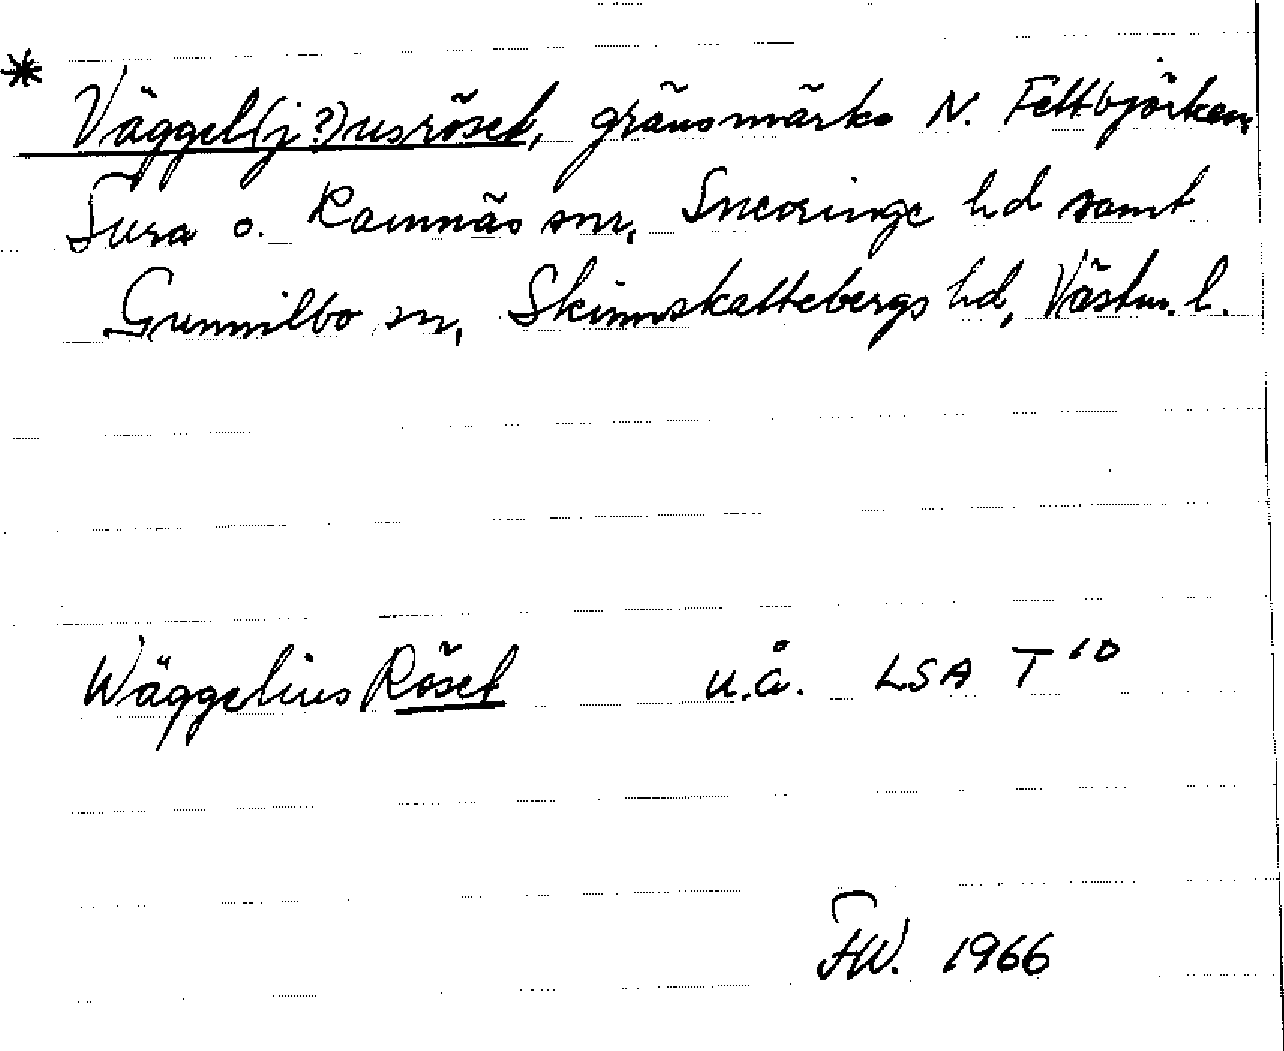 * Väggel(j?)usröset, gränsmärke N. Fettbjörken,
Sura o. Ramnäs snr, Snevringe hd samt
Gunnilbo sn, Skinnskattebergs hd, Västm. l.
Wäggelius Röset u.å. LSA T 10
FW. 1966